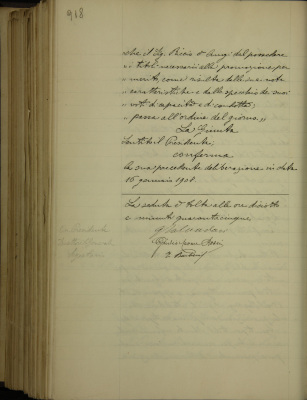 918
che il Sig. d'Augi del possedere
i titoli necessari alla promozione per
merito, come risulta dalle sue note
caratteristiche e dallo specchio dei suoi
voti di capacità e di condotta;
passa all'ordine del giorno
La Giunta
Sentito il Presidente;
conferma
la sua precedente deliberazione in data
16 gennaio 1908.
La seduta è tolta alle ore diciotto
e minuti quarantacinque